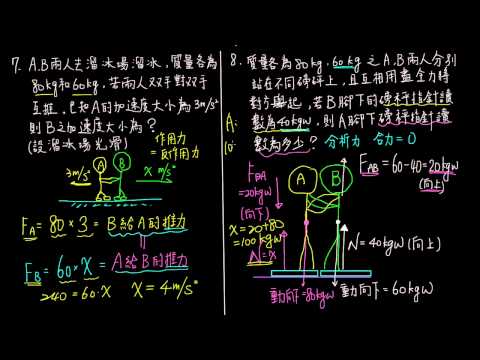 7. A.B兩人去溜冰場溜冰，質量各為
80kg和60kg，若兩人双手對双手
互推，已知A的加速度大小為3m/s²
則B之加速度大小為？
(設溜冰場光滑)
作用力
=反作用力
A
B
3m/s²
X m/s²
F_A = 80×3 = B給A的推力
||
F_B = 60×X = A給B的推力
240=60·X X=4m/s²
8. 質量各為80kg、60kg之A.B兩人分別
站在不同磅秤上，且互相用盡全力將
對方舉起，若B腳下的磅秤指針讀
數為40kgw，則A腳下磅秤指針讀
數為多少？ 分析力 合力=0
A:
F_BA
=20kgw
(向下)
F_AB=60-40=20kgw
(向上)
A
B
X=20+80
=100kgw
N=X
N=40kgw(向上)
重力向下=80kgw
重力向下=60kgw